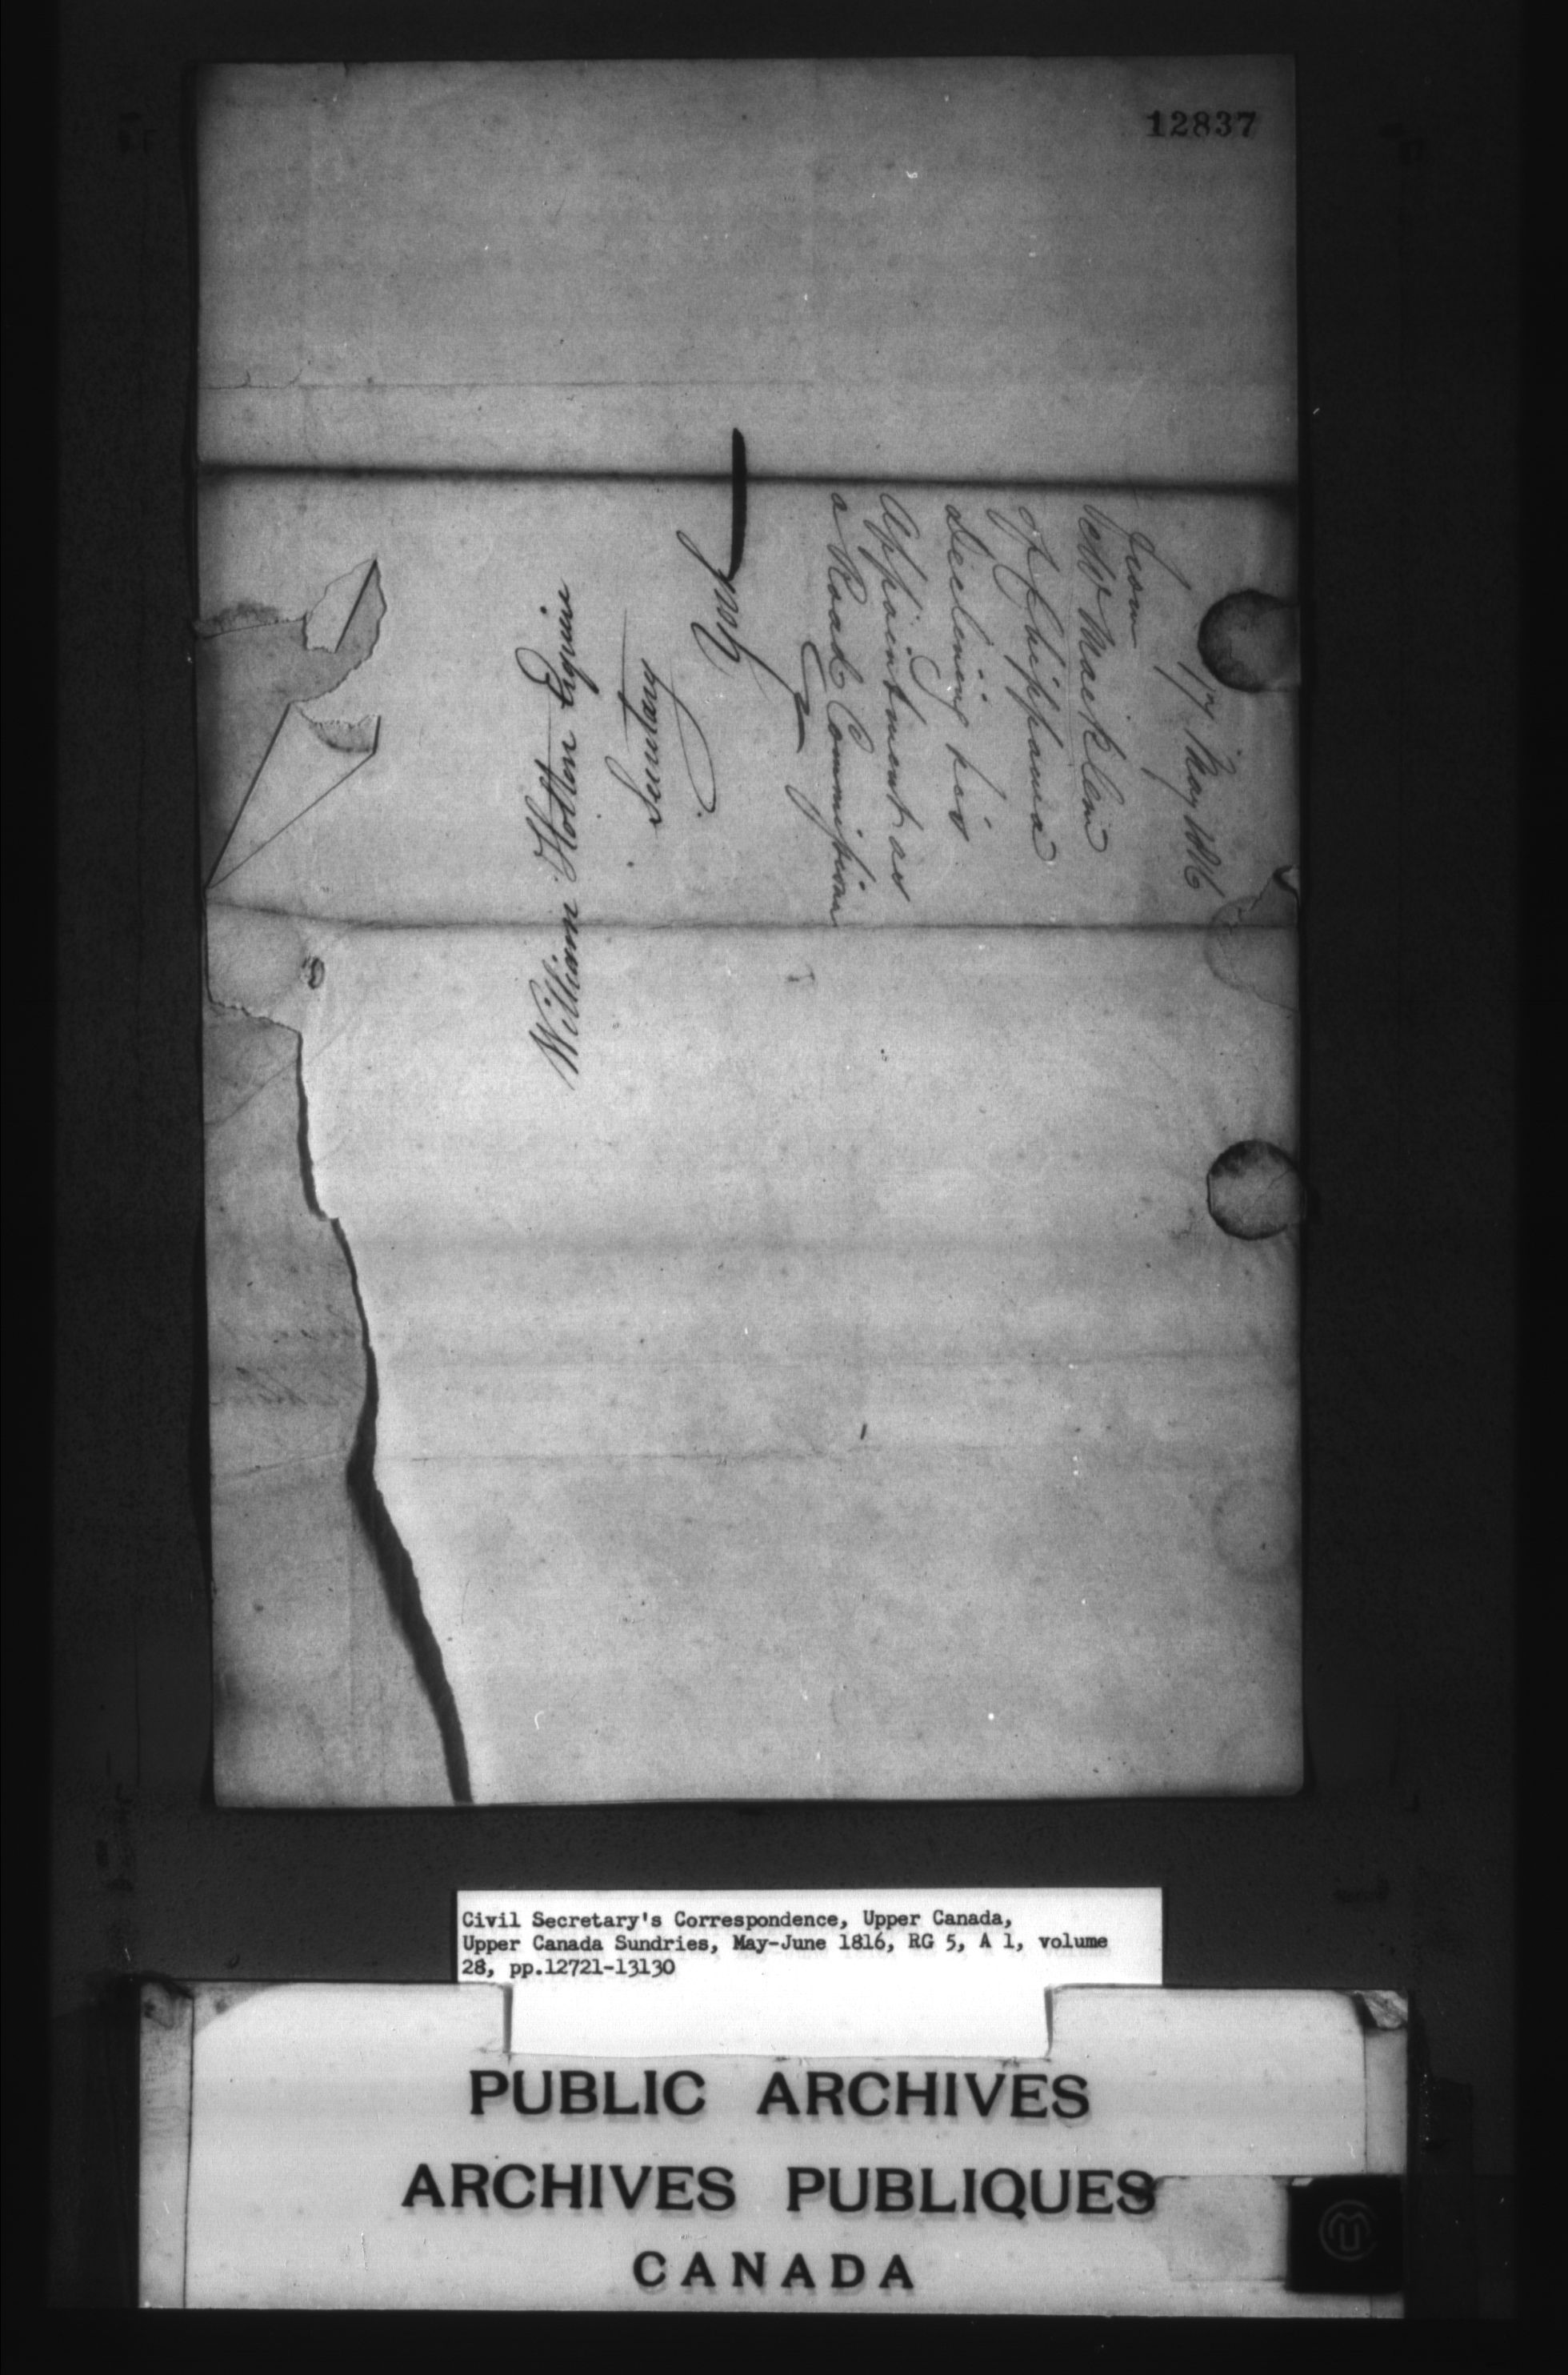 12837
17 May 1816
From
Macklem
of Chippawa
declining his
Appointment as
a Road Commissioner
William Hotten Esquire
Secretary
York
Civil Secretary's Correspondence, Upper Canada,
Upper Canada Sundries, May-June 1816, RG 5, A 1, volume
28, pp.12721-13130
PUBLIC ARCHIVES
ARCHIVES PUBLIQUES
CANADA